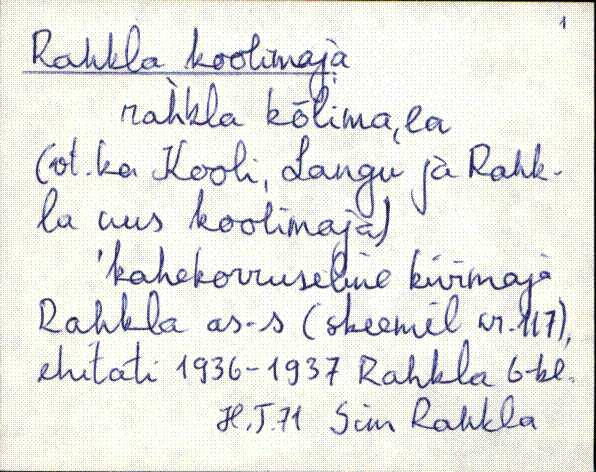 1
Rahkla koolimaja
rah̀kla kōlima,ea
(vt. ka Kooli, Langu ja Rahk-
la uus koolimaja)
'kahekorruseline kivimaja
Rahkla as-s (skeemil nr. 117),
ehitati 1936-1937 Rahkla 6-kl.
H.J.71 Sim Rahkla